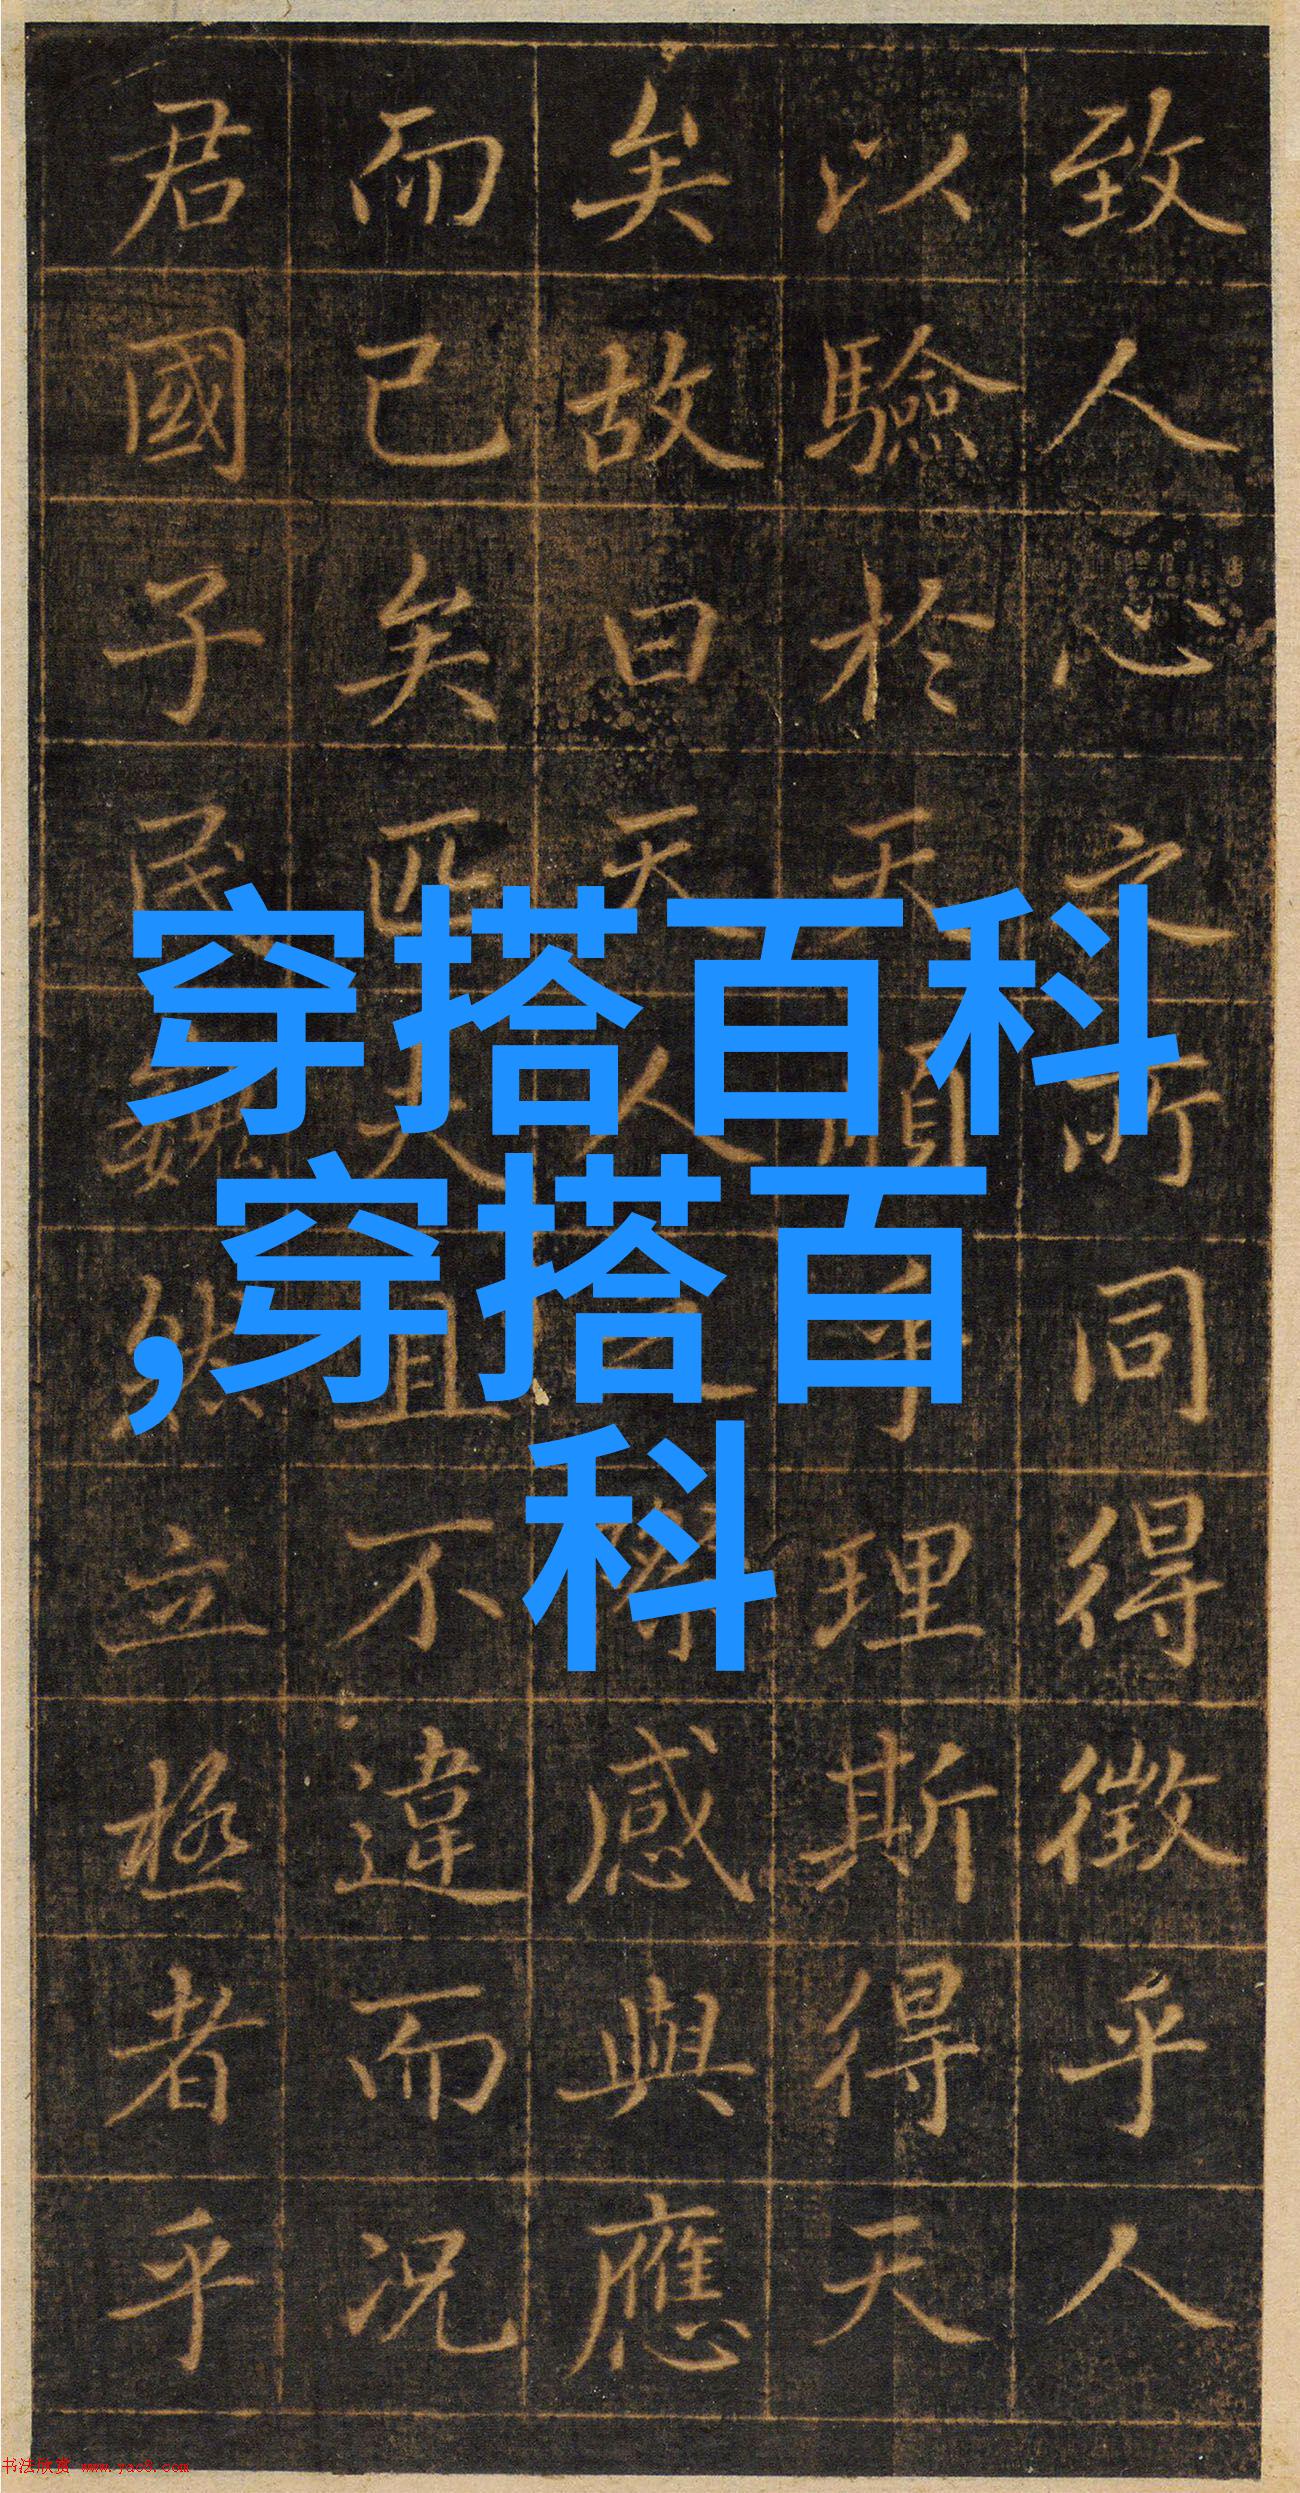 致人心之所同得徵乎人
以驗於天順乎理斯得天
矣故曰天人之際感與應
而已矣匹夫且不違而況
君國子民巍然立極者乎
穿搭百科
,穿搭百
科
书法欣赏 www.yac8.com